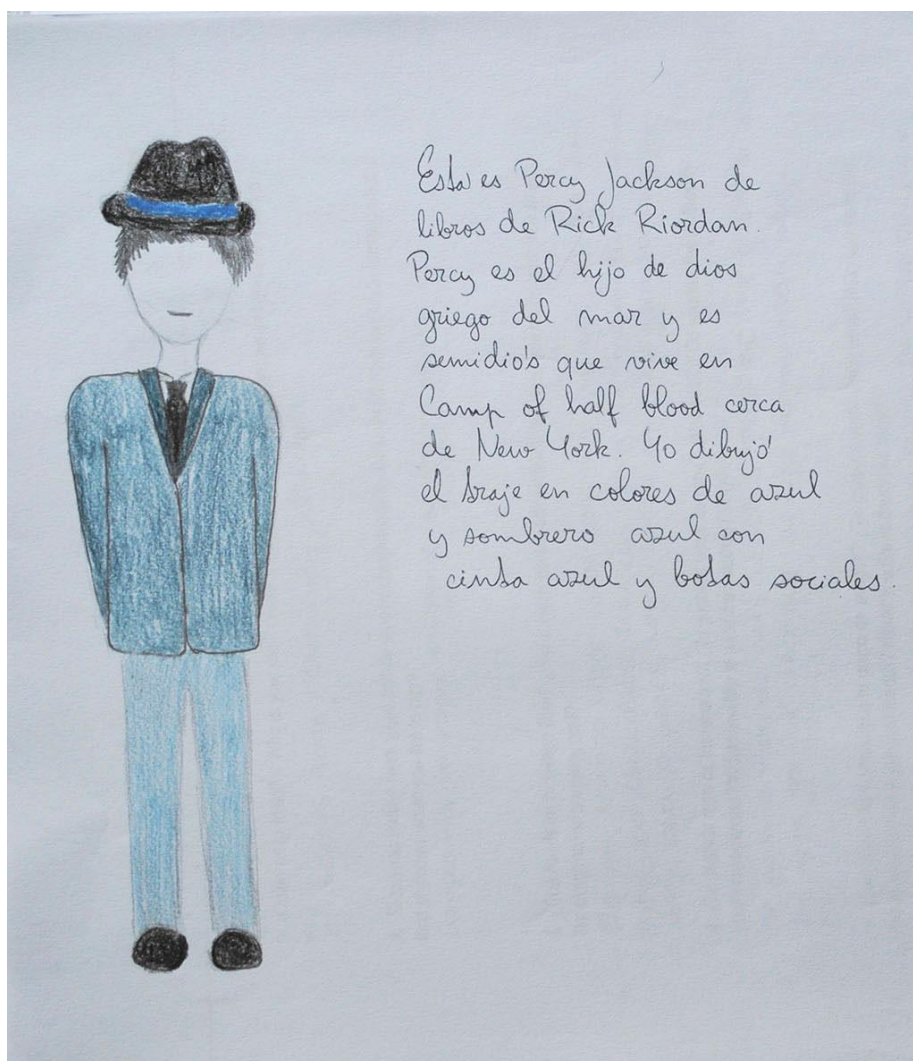 Esta es Percy Jackson de
libros de Rick Riordan.
Percy es el hijo de dios
griego del mar y es
semidiós que vive en
Camp of half blood cerca
de New York. Yo dibujó
el traje en colores de azul
y sombrero azul con
cinta azul y botas sociales.